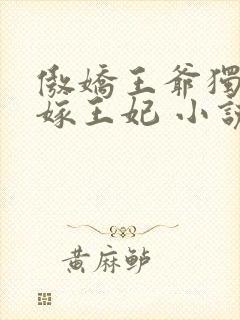 傲嬌王爺獨
嫁王妃 小說
黃麻鲈